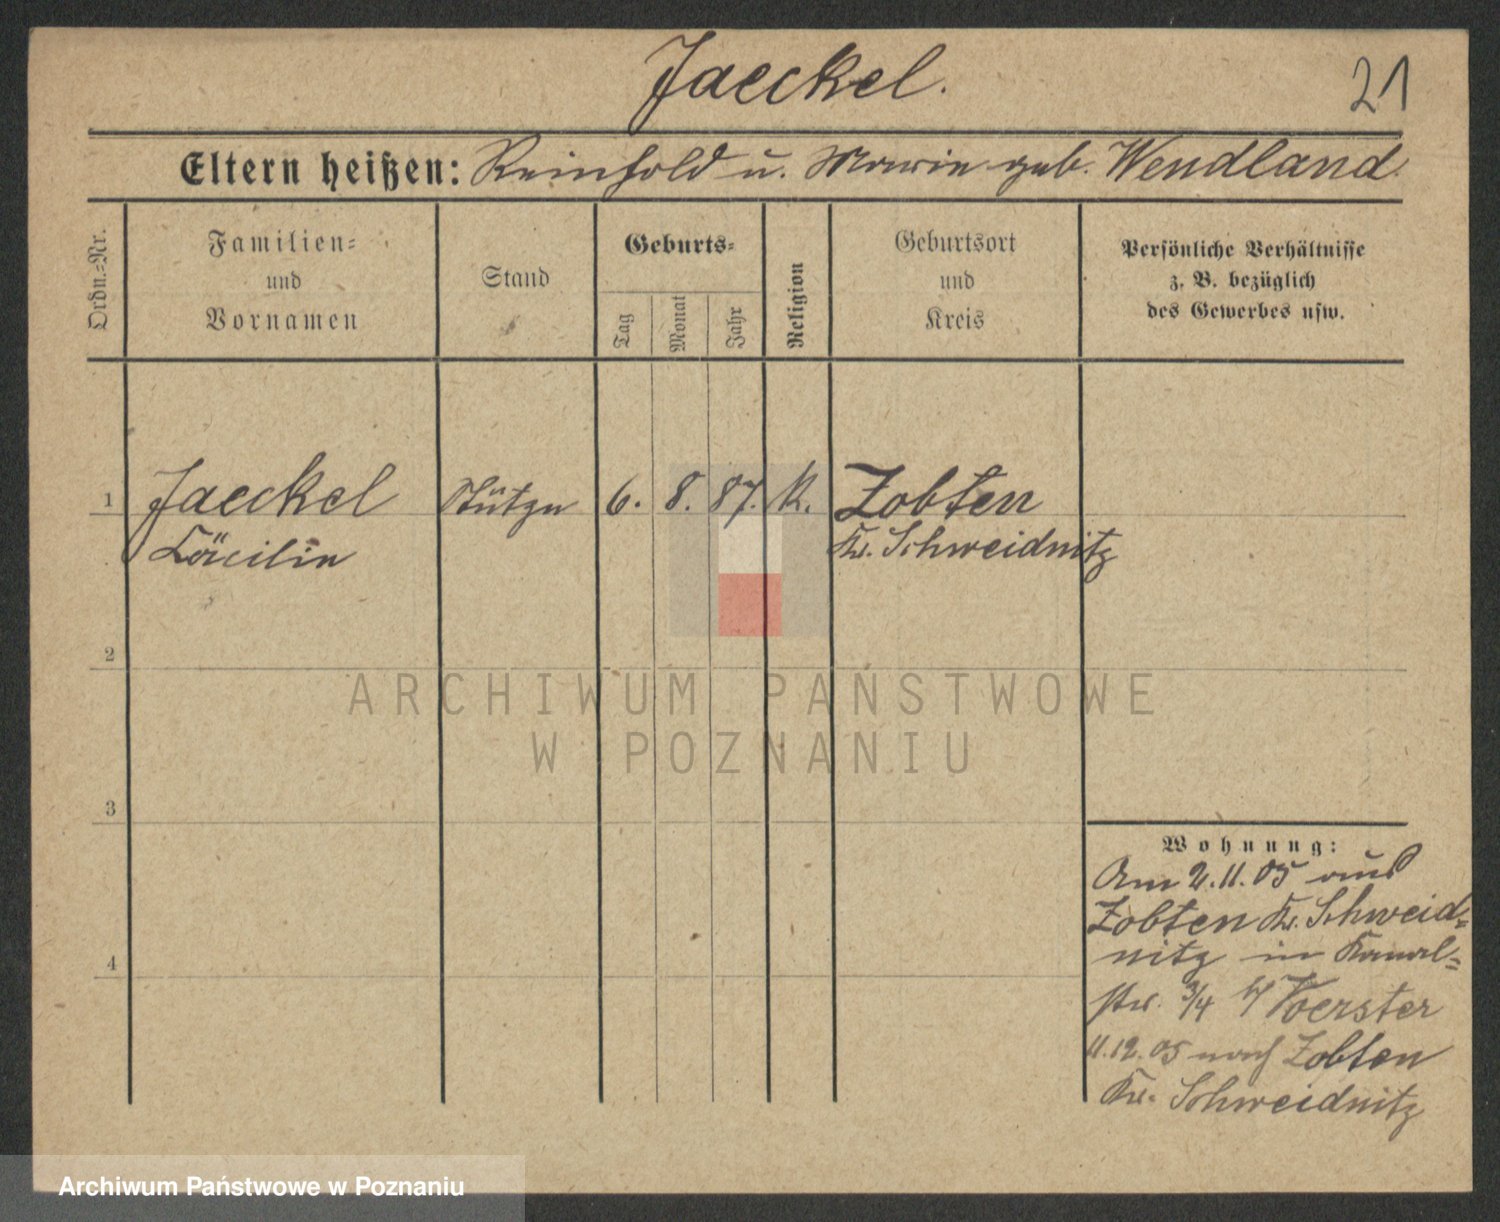 Jaeckel.
21
Eltern heißen: Reinhold u. Marie geb. Wendland.
Ordn.=Nr.
Familien=
und
Vornamen
Stand
Geburts=
Tag
Monat
Jahr
Religion
Geburtsort
und
Kreis
Persönliche Verhältnisse
z. B. bezüglich
des Gewerbes usw.
1
Jaeckel
Stütze
6. 8. 87. K.
Zobten
Cäcilie
Kr. Schweidnitz
2
ARCHIWUM PAŃSTWOWE
W POZNANIU
3
Wohnung:
Am 2.11.05 aus
Zobten Kr. Schweid=
nitz in Kanal=
str. 3/4 b/ Foerster
11.12.05 nach Zobten
Kr. Schweidnitz
4
Archiwum Państwowe w Poznaniu